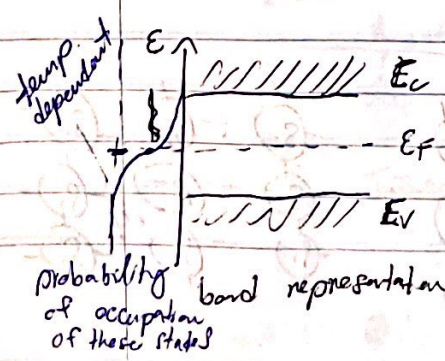 temp
dependant
ε
Ec
εF
Ev
probability
of occupation
of these states
band representation